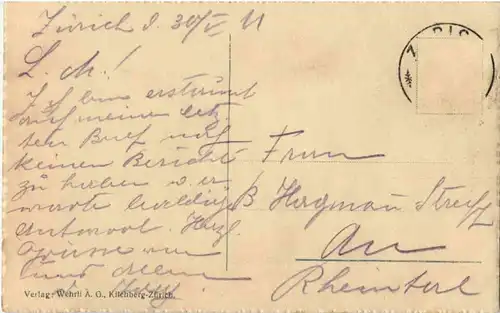 Zürich d. 30/V 11
L. M!
Ich bin erstaunt
auf meinen letz-
ten Brief noch
keinen Bericht
zu haben u. er-
warte baldige
Antwort. Herzl.
Grüsse von
Frau
B. Hagmann Streiff
Au
Rheintal
Verlag: Wehrli A. G., Kilchberg-Zürich.